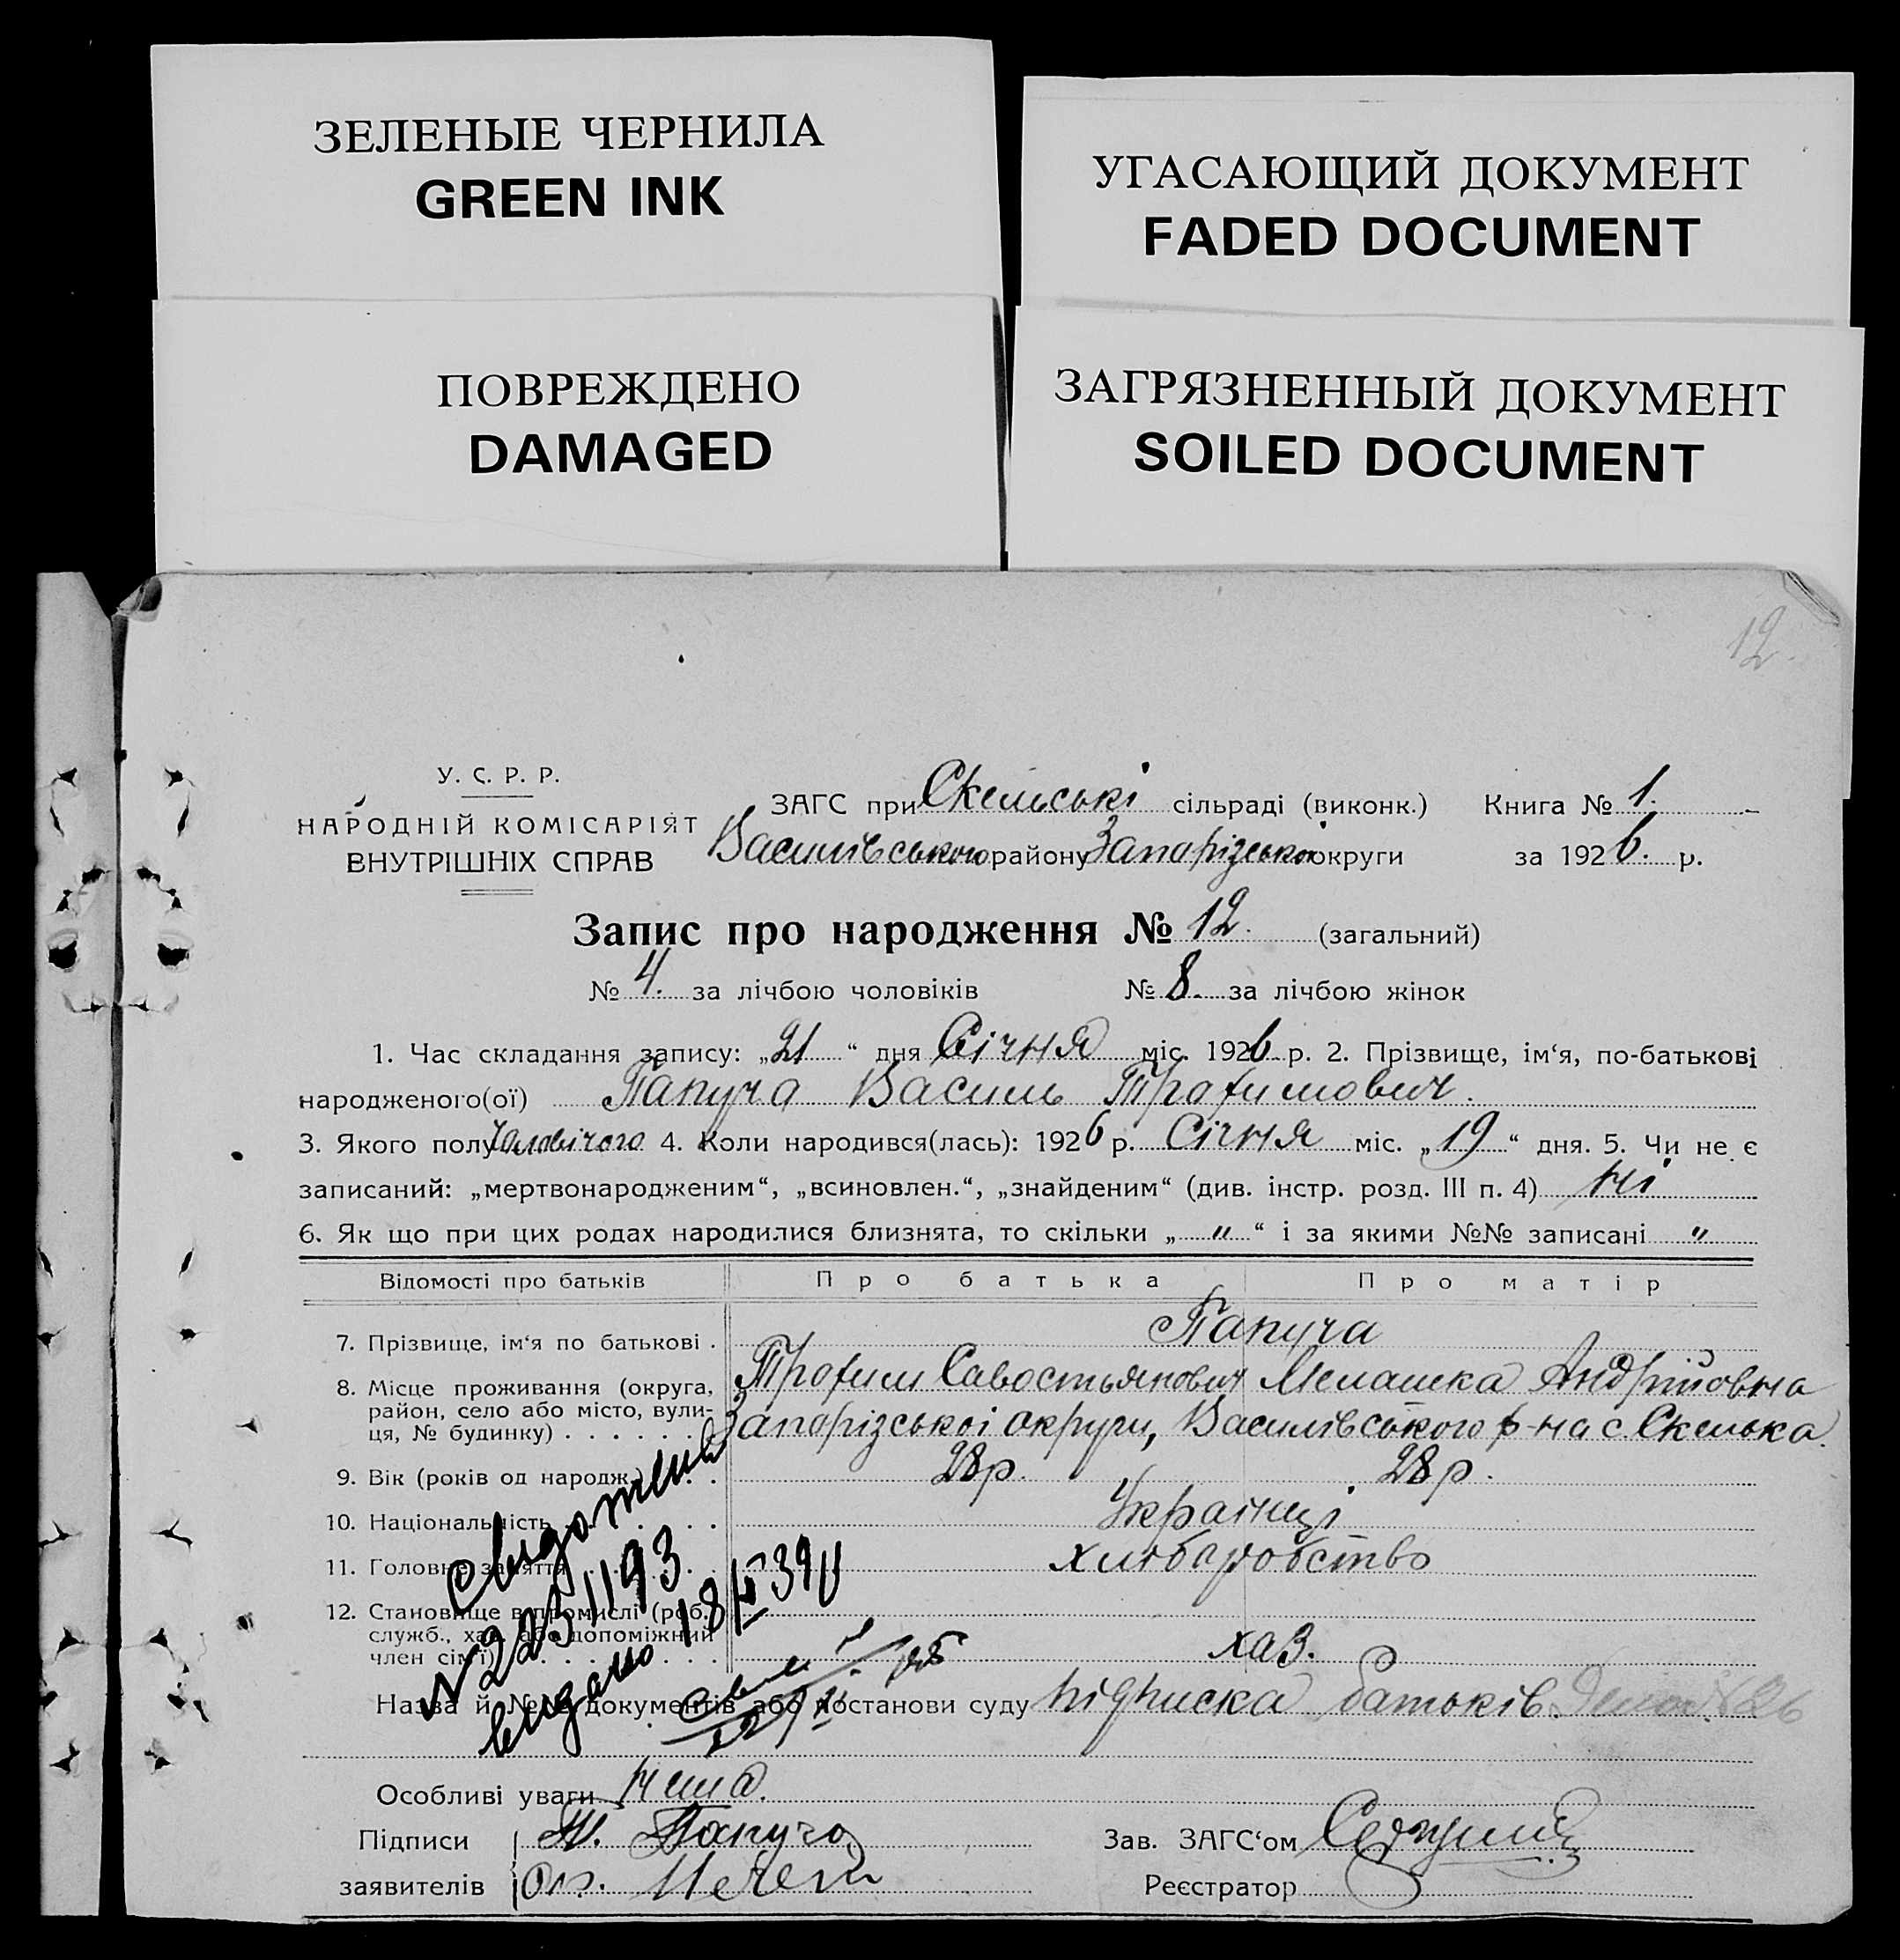 ЗЕЛЕНЫЕ ЧЕРНИЛА
GREEN INK
УГАСАЮЩИЙ ДОКУМЕНТ
FADED DOCUMENT
ПОВРЕЖДЕНО
DAMAGED
ЗАГРЯЗНЕННЫЙ ДОКУМЕНТ
SOILED DOCUMENT
12.
У. С. Р. Р.
НАРОДНІЙ КОМІСАРІЯТ
ВНУТРІШНІХ СПРАВ
ЗАГС при Скельські сільраді (виконк.) Книга № 1.
Василівського району Запорізької округи за 1926. р.
Запис про народження № 12. (загальний)
№ 4. за лічбою чоловіків № 8. за лічбою жінок
1. Час складання запису: „21“ дня Січня міс. 1926 р. 2. Прізвище, ім‘я, по-батькові
народженого(ої) Папуча Василь Трохимович.
3. Якого полу Чоловічого 4. Коли народився(лась): 1926 р. Січня міс. „19“ дня. 5. Чи не є
записаний: „мертвонародженим“, „всиновлен.“, „знайденим“ (див. інстр. розд. III п. 4) ні
6. Як що при цих родах народилися близнята, то скільки „ " “ і за якими №№ записані "
Відомості про батьків Про батька Про матір
7. Прізвище, ім‘я по батькові . Папуча
Трохим Савостьянович Мелашка Андрійовна
8. Місце проживання (округа,
район, село або місто, вули-
ця, № будинку) . . . . . . Запорізської округи, Василівського р-на с. Скелька.
9. Вік (років од народж.) . . 28 р. 28 р.
10. Національність . . . . . Українці
11. Головне заняття . . . . . хліборобство
12. Становище в промислі (роб.,
служб., хаз. або допоміжний
член сім‘ї) . . . . . . . хаз.
Свидотелив
№ 2251193
видано 18/II 39
Назва й №№ документів або постанови суду підписка батьків. № 26
Особливі уваги нема.
Підписи Т. Папуча
заявителів
Зав. ЗАГС‘ом
Реєстратор